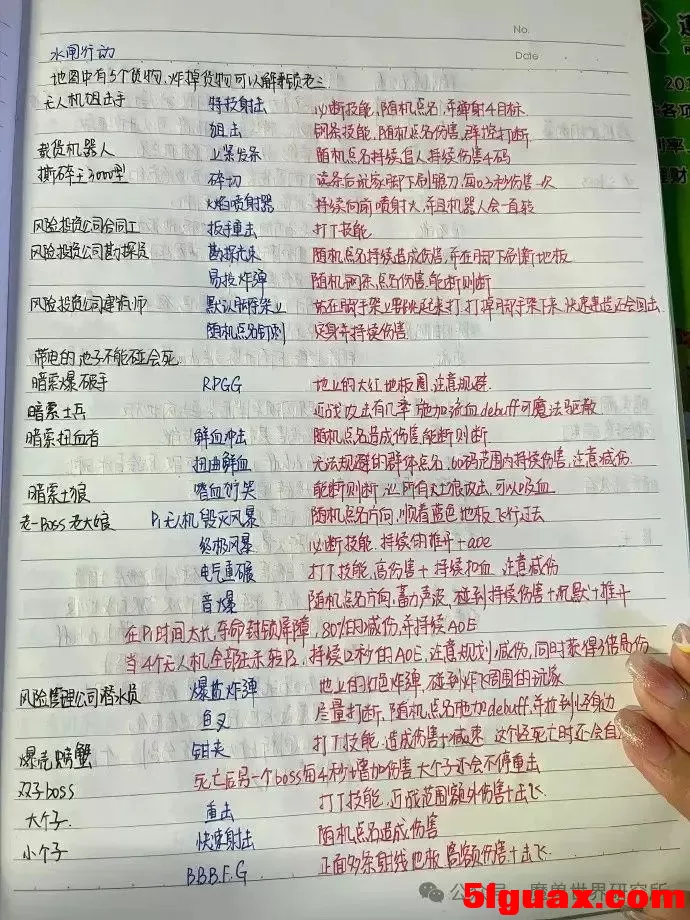 No.
Date
水闸行动
地图中有5个货物,炸掉货物可以解锁老三
无人机狙击手 特技射击 必断技能,随机点名,并缚射4目标
狙击 钢条技能,随机点名伤害,群控打断.
载货机器人 上紧发条 随机点名持续追人持续伤害4码
撕碎王3000型 碎切 读条后玩家脚下刷锯刀每0.3秒伤害一次
火焰喷射器 持续向前喷射火,并且机器人会一直转
风险投资公司合同工 扳手重击 打T技能
风险投资公司勘探员 勘探光束 随机点名持续造成伤害,并在脚下刷新地板
易投炸弹 随机点名伤害,能断则断
风险投资公司建筑师 默认脚手架上 站在脚手架上 打,打掉脚手架下来,快速建造还会回去.
随机点名钉刺 眩晕并持续伤害
带电的池子不能碰会死
暗索爆破手 RPGG 地上的大红地板圈,注意规避.
暗索士兵 近战攻击有几率施加流血debuff可魔法驱散
暗索扭血者 鲜血冲击 随机点名造成伤害,能断则断
扭曲鲜血 无法规避的群体点名,60码范围内持续伤害,注意减伤.
暗索土狼 嗜血狞笑 能断则断,必所有土狼攻击,可以吸血
老一Boss 老大娘 P1无人机 毁灭风暴 随机点名方向,顺着蓝色地板飞行过去
终极风暴 必断技能,持续的推开+aoe
电气重碾 打T技能,高伤害+持续扣血,注意减伤
音爆 随机点名方向,蓄力声波,碰到持续伤害+沉默+推开
在P1时间太长,夺命封锁屏障,80%的减伤,并持续AOE
当4个无人机全部击杀转P2,持续12秒的AOE,注意规划减伤,同时获得3倍易伤
风险管理公司潜水员 爆盐炸弹 地上的红色炸弹,碰到炸飞周围的玩家
鱼叉 尽量打断,随机点名施加debuff,并拉到怪身边
爆壳螃蟹 钳夹 打T技能,造成伤害+减速 这个怪死亡时还会自
双子boss 死亡后另一个boss每4秒+增加伤害 大个子还会不停重击
大个子 重击 打T技能,近战范围额外伤害+击飞
小个子 快速射击 随机点名造成伤害
B.B.B.F.G 正面多条射线地板 高额伤害+击飞.
公众号 · 魔兽世界研究所
5fguax.com
201